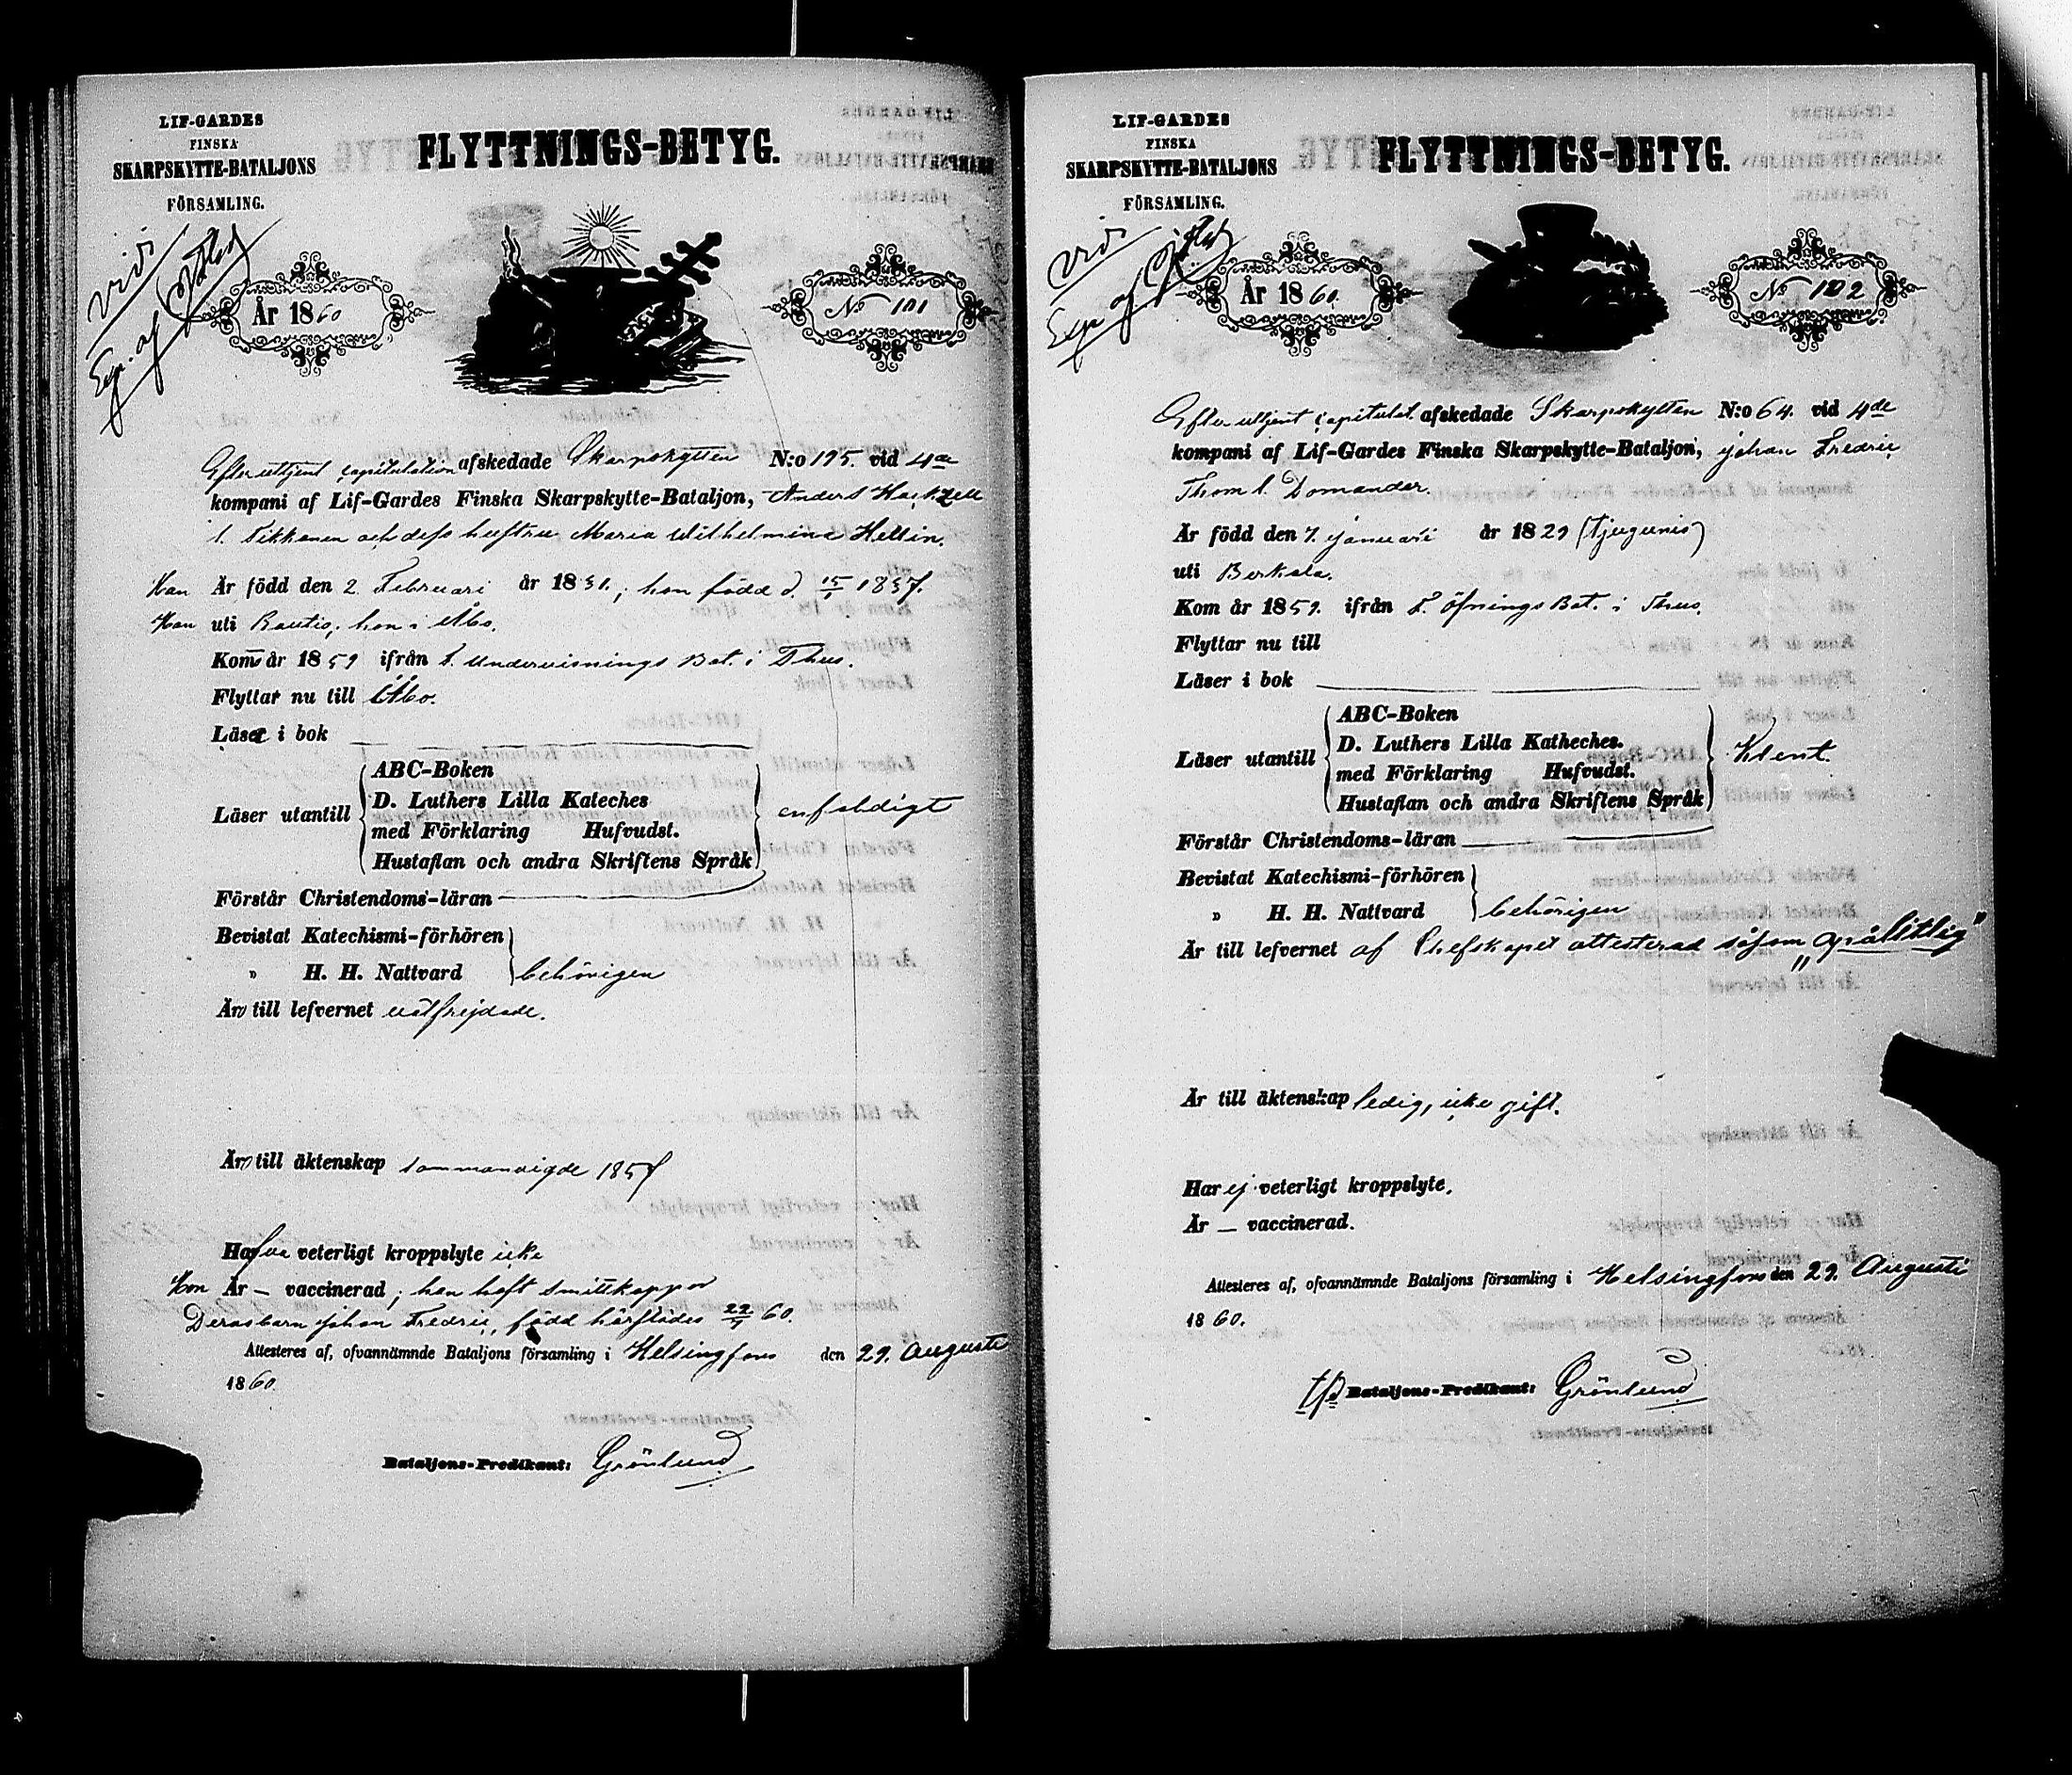 LIF-GARDES
FINSKA
SKARPSKYTTE-BATALJONS
FÖRSAMLING.
FLYTTNINGS-BETYG.
vidi
Exp. af
År 1860
No 101
Efter uttjent capitulation afskedade Skarpskytten N:o 195. vid 4de
kompani af Lif-Gardes Finska Skarpskytte-Bataljon, Anders Hackzell
l. Tikkanen och dess hustru Maria Wilhelmina Hellin.
Han Är född den 2 Februari år 1831.; hon född d. 15/1 1837.
Han uti Rautio, hon i Åbo.
Kom år 1859 ifrån f. Undervisnings Bat. i Thus.
Flyttar nu till Åbo.
Läser i bok
Läser utantill
ABC-Boken
D. Luthers Lilla Kateches
med Förklaring Hufvudst.
Hustaflan och andra Skriftens Språk
enfaldigt
Förstår Christendoms-läran
Bevistat Katechismi-förhören
" H. H. Nattvard
behörigen
Äro till lefvernet
Äro till äktenskap sammanvigde 1857
Hafva veterligt kroppslyte icke
Hon Är – vaccinerad; han haft smittkoppor
Deras barn Johan Fredric, född härstädes 22/7 60.
Attesteras af, ofvannämnde Bataljons församling i Helsingfors den 29. Augusti
1860.
Bataljons-Predikant: Grönlund
LIF-GARDES
FINSKA
SKARPSKYTTE-BATALJONS
FÖRSAMLING.
FLYTTNINGS-BETYG.
vidi
Exp. af
År 1860.
No 102
Efter uttjent capitulat. afskedade Skarpskytten N:o 64. vid 4de
kompani af Lif-Gardes Finska Skarpskytte-Bataljon, Johan Fredric
Thom l. Domander.
Är född den 7. Januari år 1829 (Tjugunio)
uti Berkala.
Kom år 1859. ifrån f. öfnings Bat. i Thus.
Flyttar nu till
Läser i bok
Läser utantill
ABC-Boken
D. Luthers Lilla Katheches.
med Förklaring Hufvudst.
Hustaflan och andra Skriftens Språk
Klent.
Förstår Christendoms-läran
Bevistat Katechismi-förhören
" H. H. Nattvard
behörigen
Är till lefvernet af Chefskapet attesterad såsom "opålitlig"
Är till äktenskap ledig, icke gift.
Har ej veterligt kroppslyte.
Är – vaccinerad.
Attesteres af, ofvannämnde Bataljons församling i Helsingfors den 29. Augusti
1860.
Bataljons-Predikant: Grönlund